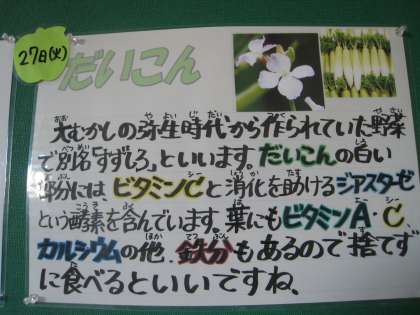 27日(火)
だいこん
大むかしの弥生時代から作られていた野菜
で別名「すずしろ」といいます。だいこんの白い
部分には、ビタミンCと消化を助けるジアスターゼ
という酵素を含んでいます。葉にもビタミンA・C、
カルシウムの他、鉄分もあるので捨てず
に食べるといいですね、